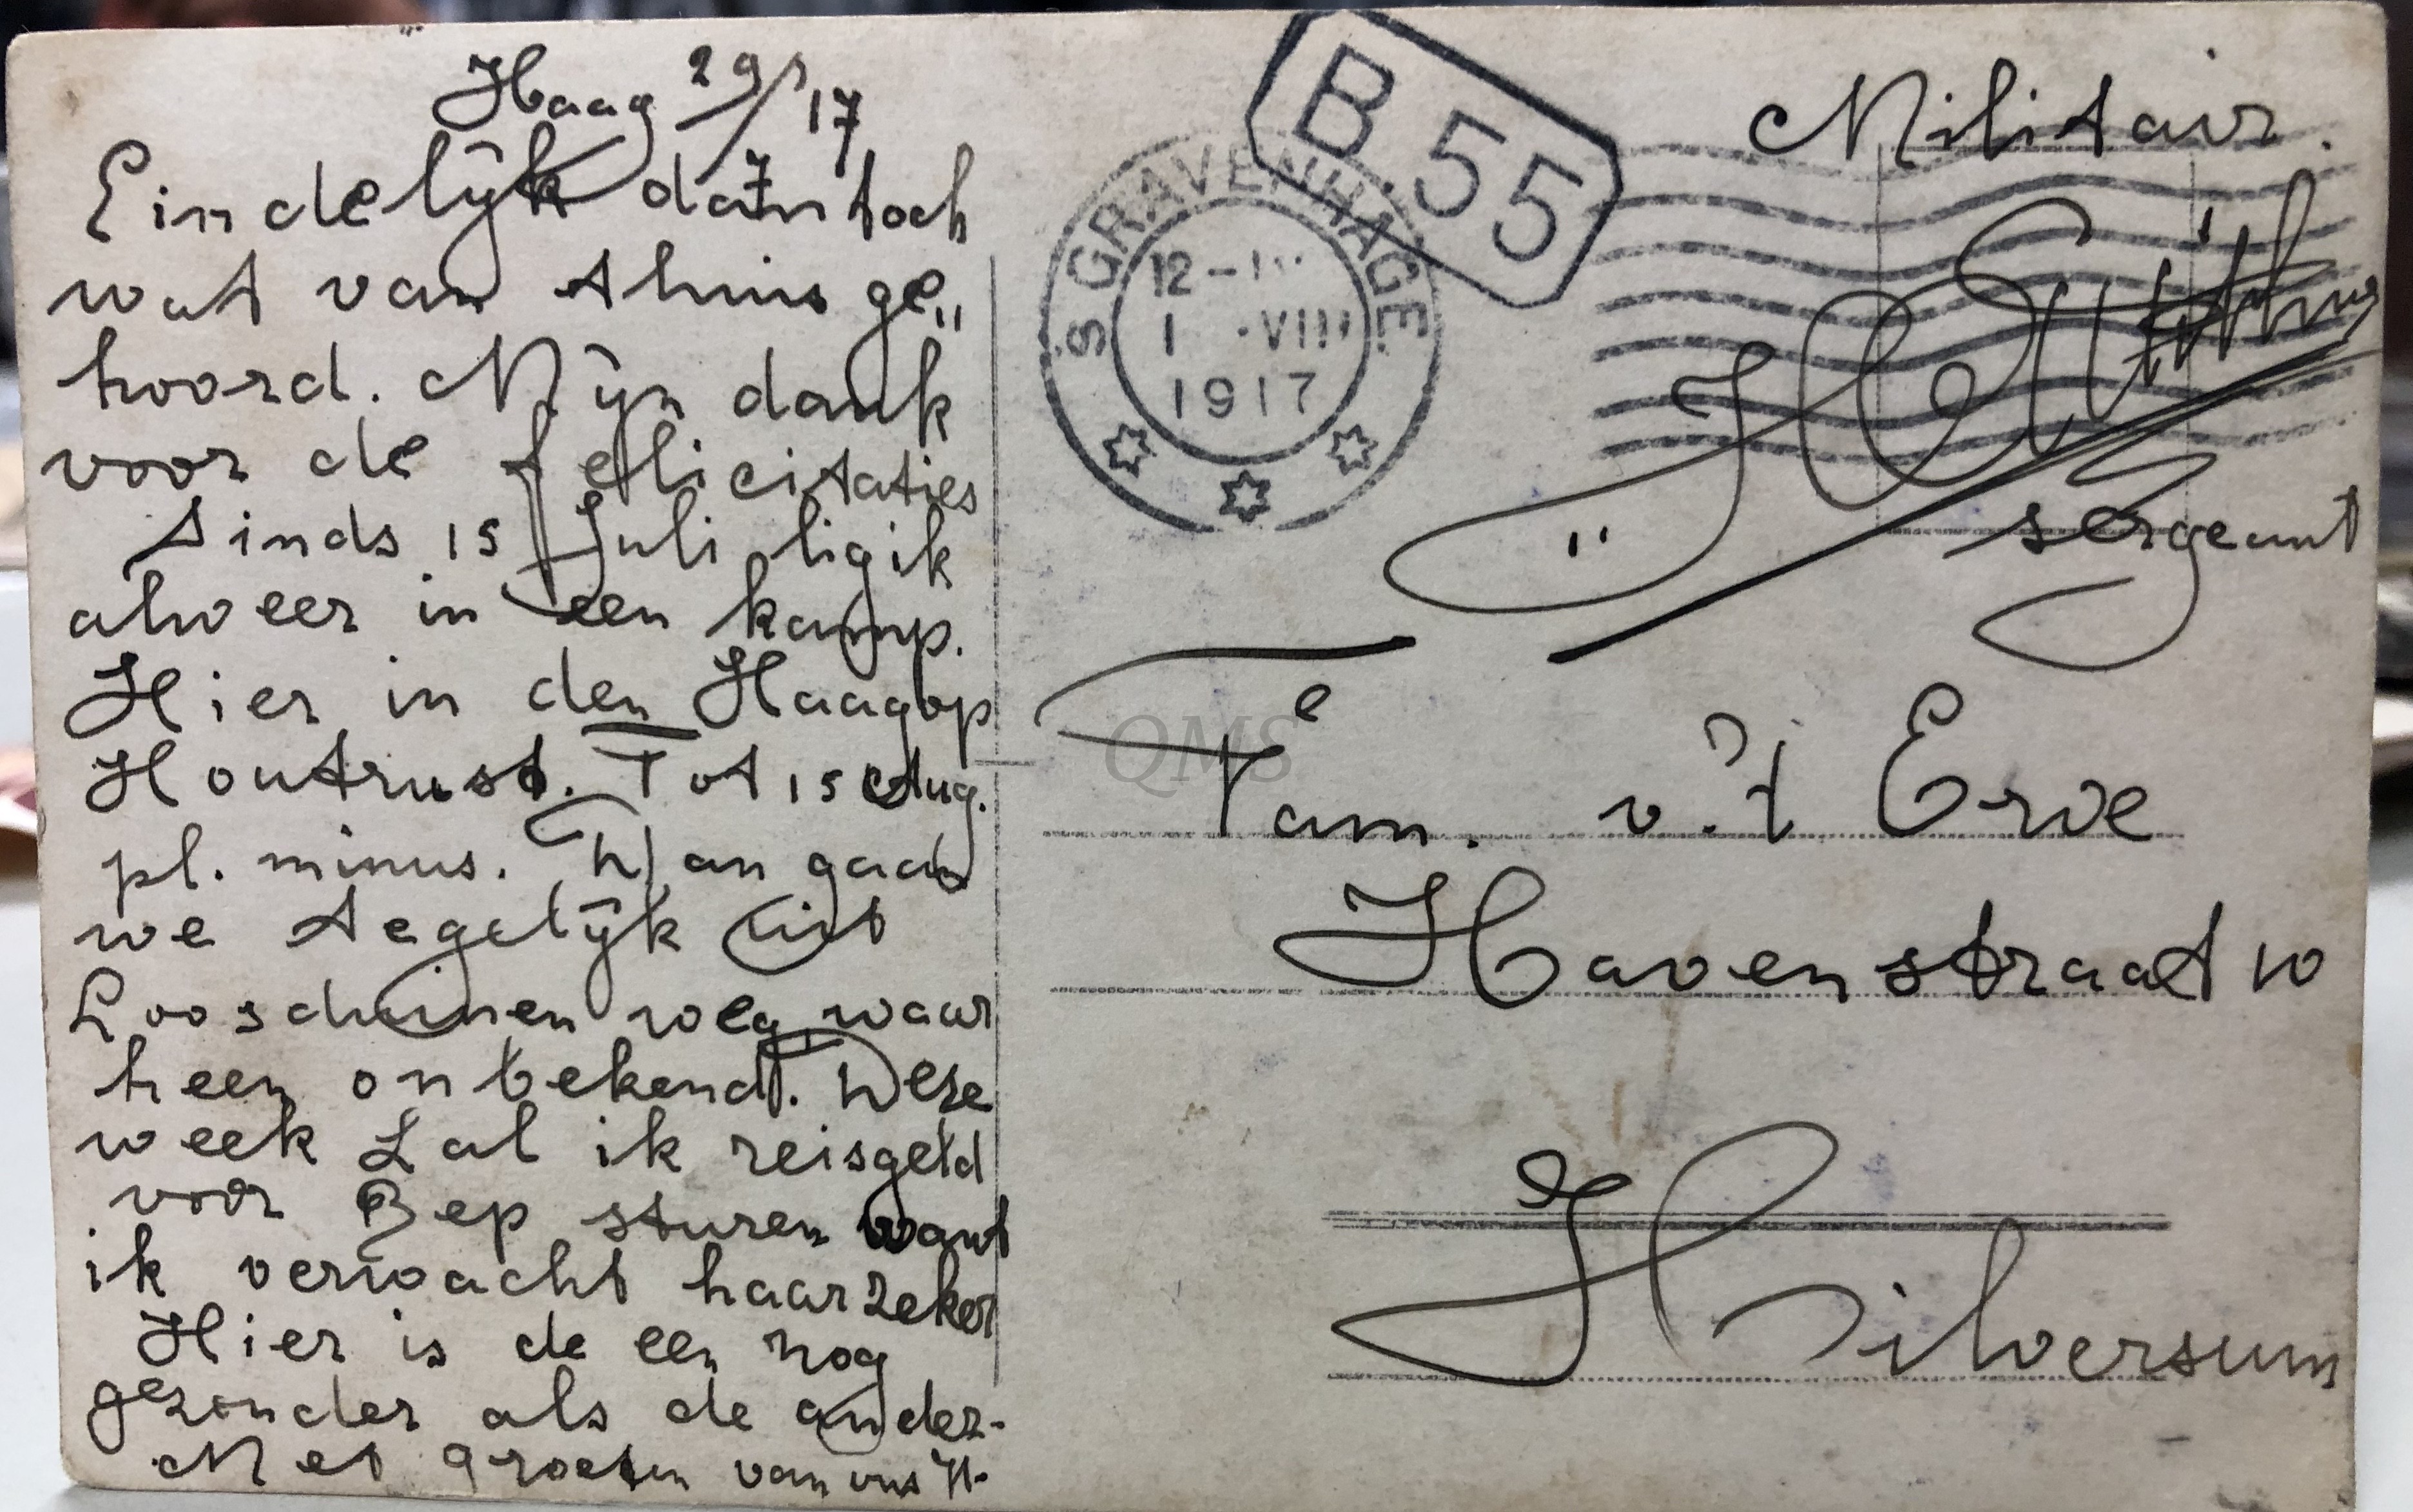 Haag 29/7 17
Eindelijk dan toch
wat van thuis ge„
hoord. Mijn dank
voor de felicitaties
Sinds 15 Juli lig ik
alweer in een kamp.
Hier in den Haag op
Houtrust. Tot 15 Aug.
pl. minus. Dan gaan
we tegelijk uit
Loosduinen weg, waar
heen onbekend. Deze
week zal ik reisgeld
voor Bep sturen want
ik verwacht haar zeker
Hier is de een nog
gezonder als de ander.
Met groeten van ons
B 55
'S GRAVENHAGE
12-
1 .VIII
1917
Militair.
sergeant
Fam. v. 't Erve
Havenstraat 10
Hilversum
QMS